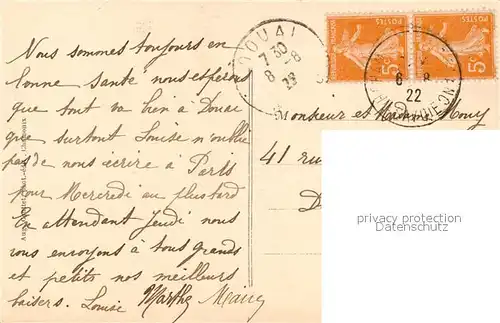 Nous sommes toujours en
bonne santé nous espérons
que tout va bien à Douai
que surtout Louise n'oublie
pas de nous écrire à Paris
pour Mercredi au plus tard
En attendant Jeudi nous
vous envoyons à tous grands
et petits nos meilleurs
baisers. Louise Marthe
DOUAI
7 30
8 -8
POSTES
5c
5c
6 - 8
22
Monsieur et Madame
41 rue
D
privacy protection
Datenschutz